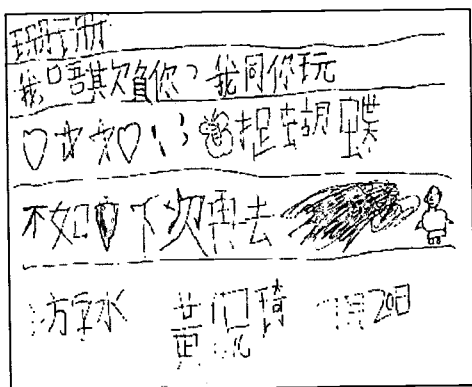 珊珊
我唔欺負你，我同你玩
捉蝴蝶
不如 下次再去
游水 黃 琦 1月20日